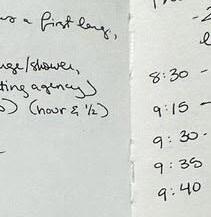 a first lang,
/shower,
ting agency)
) (hour & 1/2)
-
8:30 -
9:15 -
9:30 -
9:35
9:40